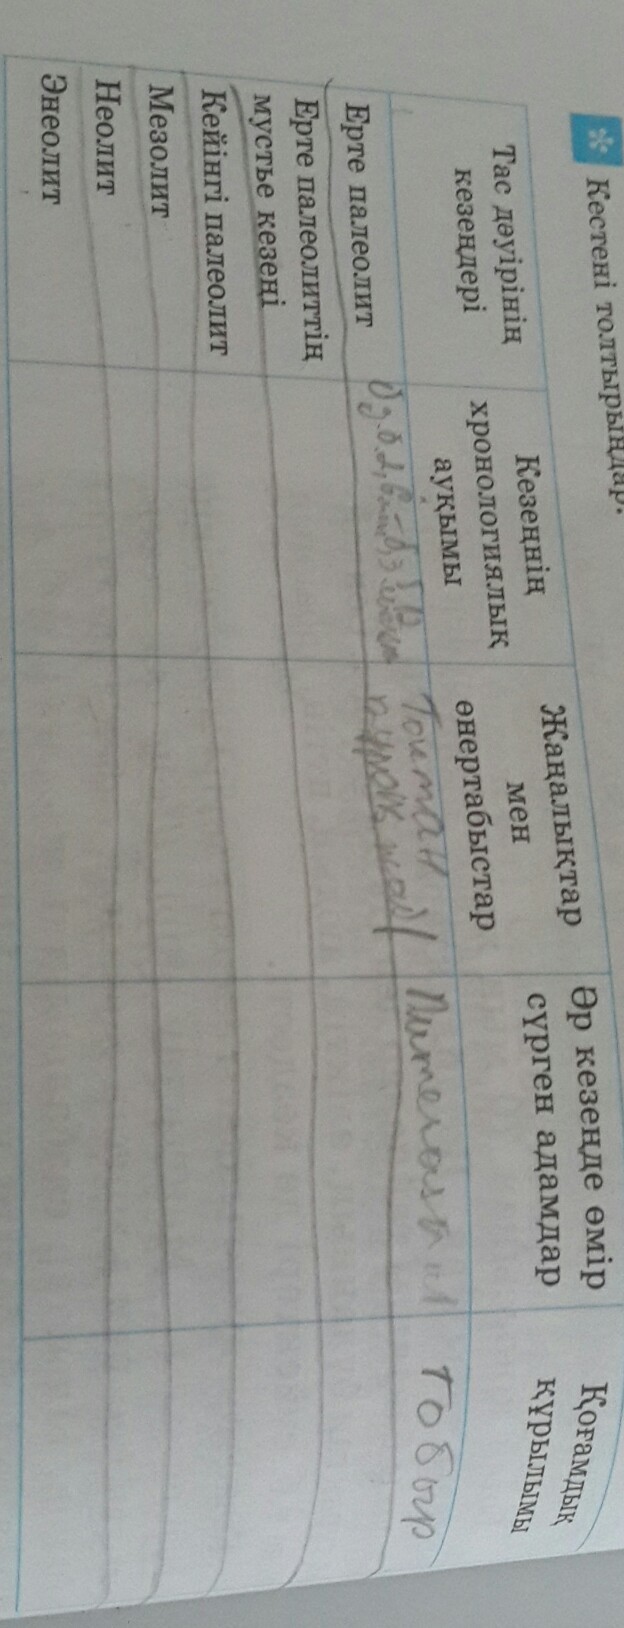 Кестені толтырыңдар.
Тас дәуірінің
кезеңдері
Кезеңнің
хронологиялық
ауқымы
Жаңалықтар
мен
өнертабыстар
Әр кезеңде өмір
сүрген адамдар
Қоғамдық
құрылымы
Ерте палеолит
тобыр
Ерте палеолиттің
мустье кезеңі
Кейінгі палеолит
Мезолит
Неолит
Энеолит